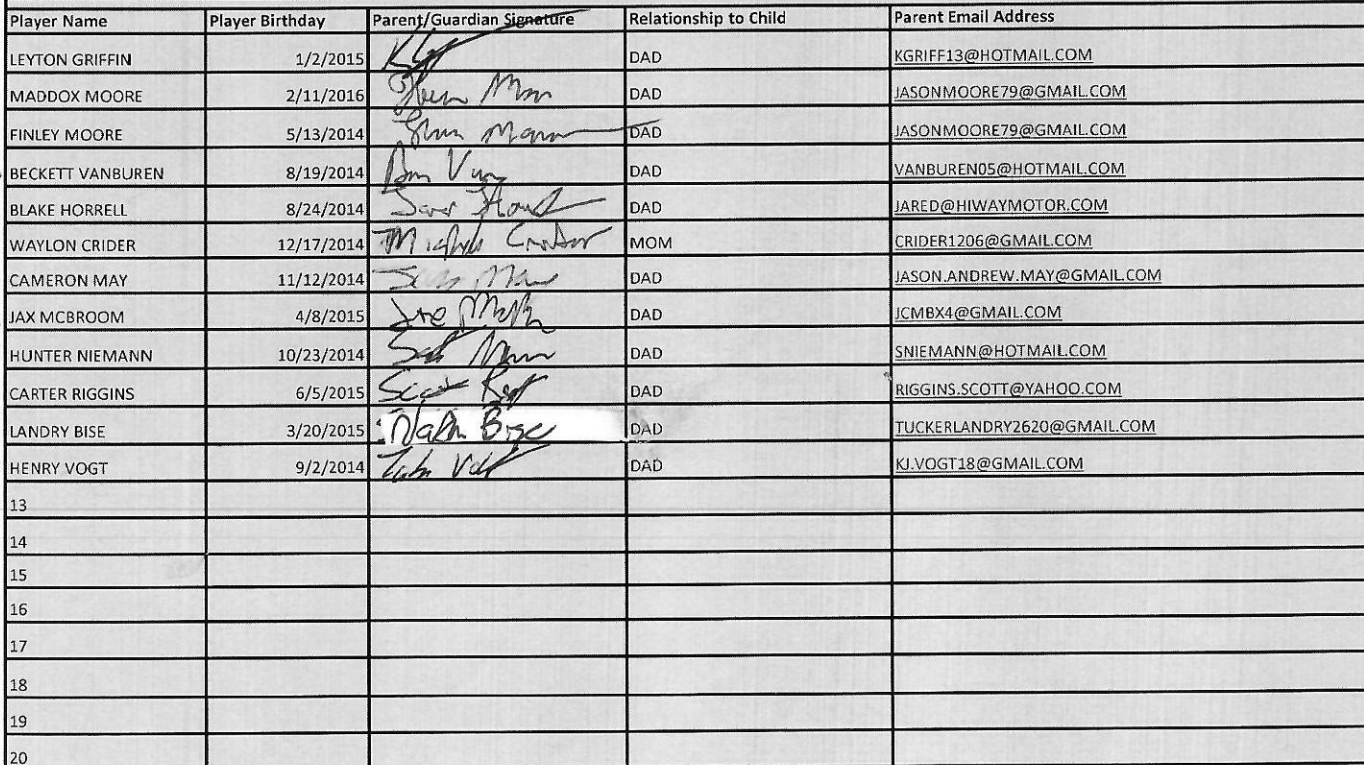 Player Name Player Birthday Parent/Guardian Signature Relationship to Child Parent Email Address
LEYTON GRIFFIN 1/2/2015 DAD KGRIFF13@HOTMAIL.COM
MADDOX MOORE 2/11/2016 DAD JASONMOORE79@GMAIL.COM
FINLEY MOORE 5/13/2014 DAD JASONMOORE79@GMAIL.COM
BECKETT VANBUREN 8/19/2014 DAD VANBUREN05@HOTMAIL.COM
BLAKE HORRELL 8/24/2014 DAD JARED@HIWAYMOTOR.COM
WAYLON CRIDER 12/17/2014 MOM CRIDER1206@GMAIL.COM
CAMERON MAY 11/12/2014 DAD JASON.ANDREW.MAY@GMAIL.COM
JAX MCBROOM 4/8/2015 DAD JCMBX4@GMAIL.COM
HUNTER NIEMANN 10/23/2014 DAD SNIEMANN@HOTMAIL.COM
CARTER RIGGINS 6/5/2015 DAD RIGGINS.SCOTT@YAHOO.COM
LANDRY BISE 3/20/2015 Bise DAD TUCKERLANDRY2620@GMAIL.COM
HENRY VOGT 9/2/2014 DAD KJ.VOGT18@GMAIL.COM
13
14
15
16
17
18
19
20